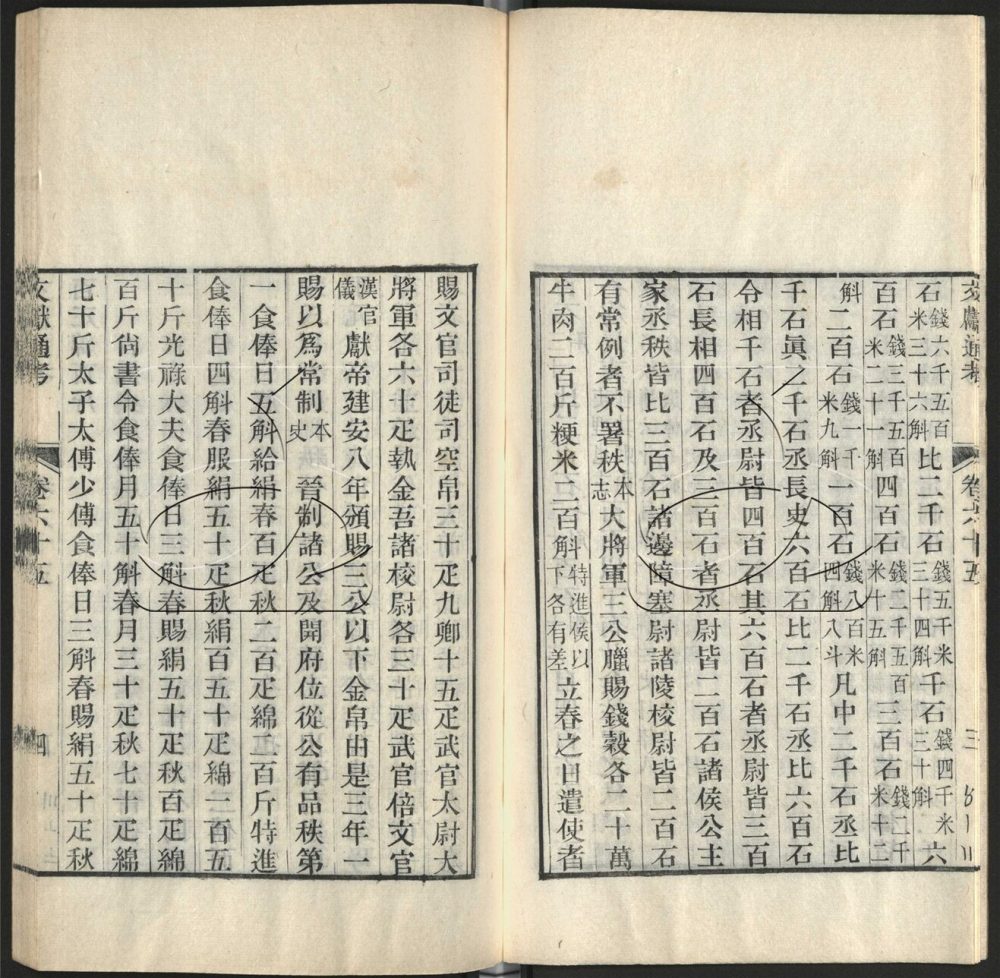 文獻通考 卷六十五 三
石錢六千五百米三十六斛比二千石錢五千米三十四斛千石錢四千米三十斛六
百石錢三千五百米二十一斛四百石錢二千五百米十五斛三百石錢二千米十二
斛二百石錢一千米九斛一百石錢八百米四斛八斗凡中二千石丞比
千石眞二千石丞長史六百石比二千石丞比六百石
令相千石者丞尉皆四百石其六百石者丞尉皆三百
石長相四百石及三百石者丞尉皆二百石諸侯公主
家丞秩皆比三百石諸邊障塞尉諸陵校尉皆二百石
有常例者不署秩本志大將軍三公臘賜錢穀各二十萬
牛肉二百斤粳米二百斛特進侯以下各有差立春之日遣使者
賜文官司徒司空帛三十疋九卿十五疋武官太尉大
將軍各六十疋執金吾諸校尉各三十疋武官倍文官
漢官儀獻帝建安八年頒賜三公以下金帛由是三年一
賜以爲常制本史晉制諸公及開府位從公有品秩第
一食俸日五斛給絹春百疋秋二百疋綿二百斤特進
食俸日四斛春服絹五十疋秋絹百五十疋綿一百五
十斤光祿大夫食俸日三斛春賜絹五十疋秋百疋綿
百斤尚書令食俸月五十斛春月三十疋秋七十疋綿
七十斤太子太傅少傅食俸日三斛春賜絹五十疋秋
文獻通考 卷六十五 四